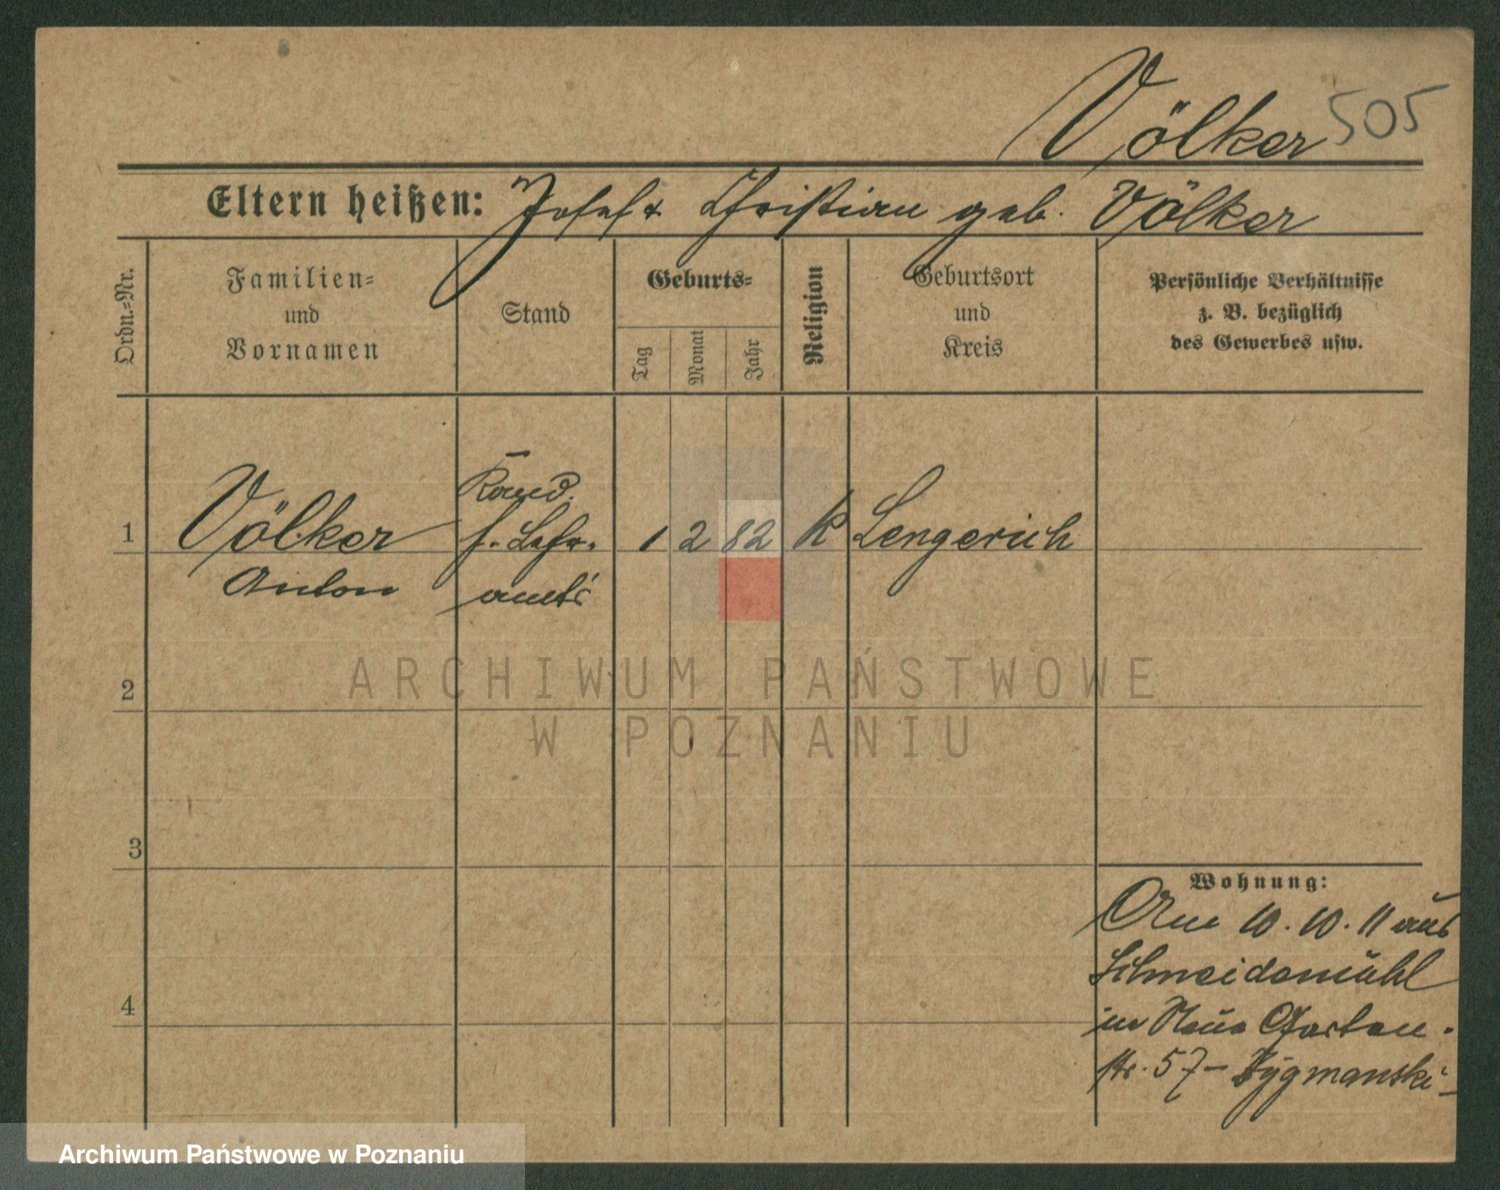 Völker 505
Eltern heißen: Josef & Christian geb. Völker
Ordn.-Nr.
Familien-
und
Vornamen
Stand
Geburts-
Tag
Monat
Jahr
Religion
Geburtsort
und
Kreis
Persönliche Verhältnisse
z. B. bezüglich
des Gewerbes usw.
Kand.
1 Völker f. Lehr- 1 2 82 k Lengerich
Anton amts
2
3
4
Wohnung:
Am 10.10.11 aus
Schneidemühl
in Neue Garten-
str. 57 - Zygmanski
ARCHIWUM PAŃSTWOWE
W POZNANIU
Archiwum Państwowe w Poznaniu